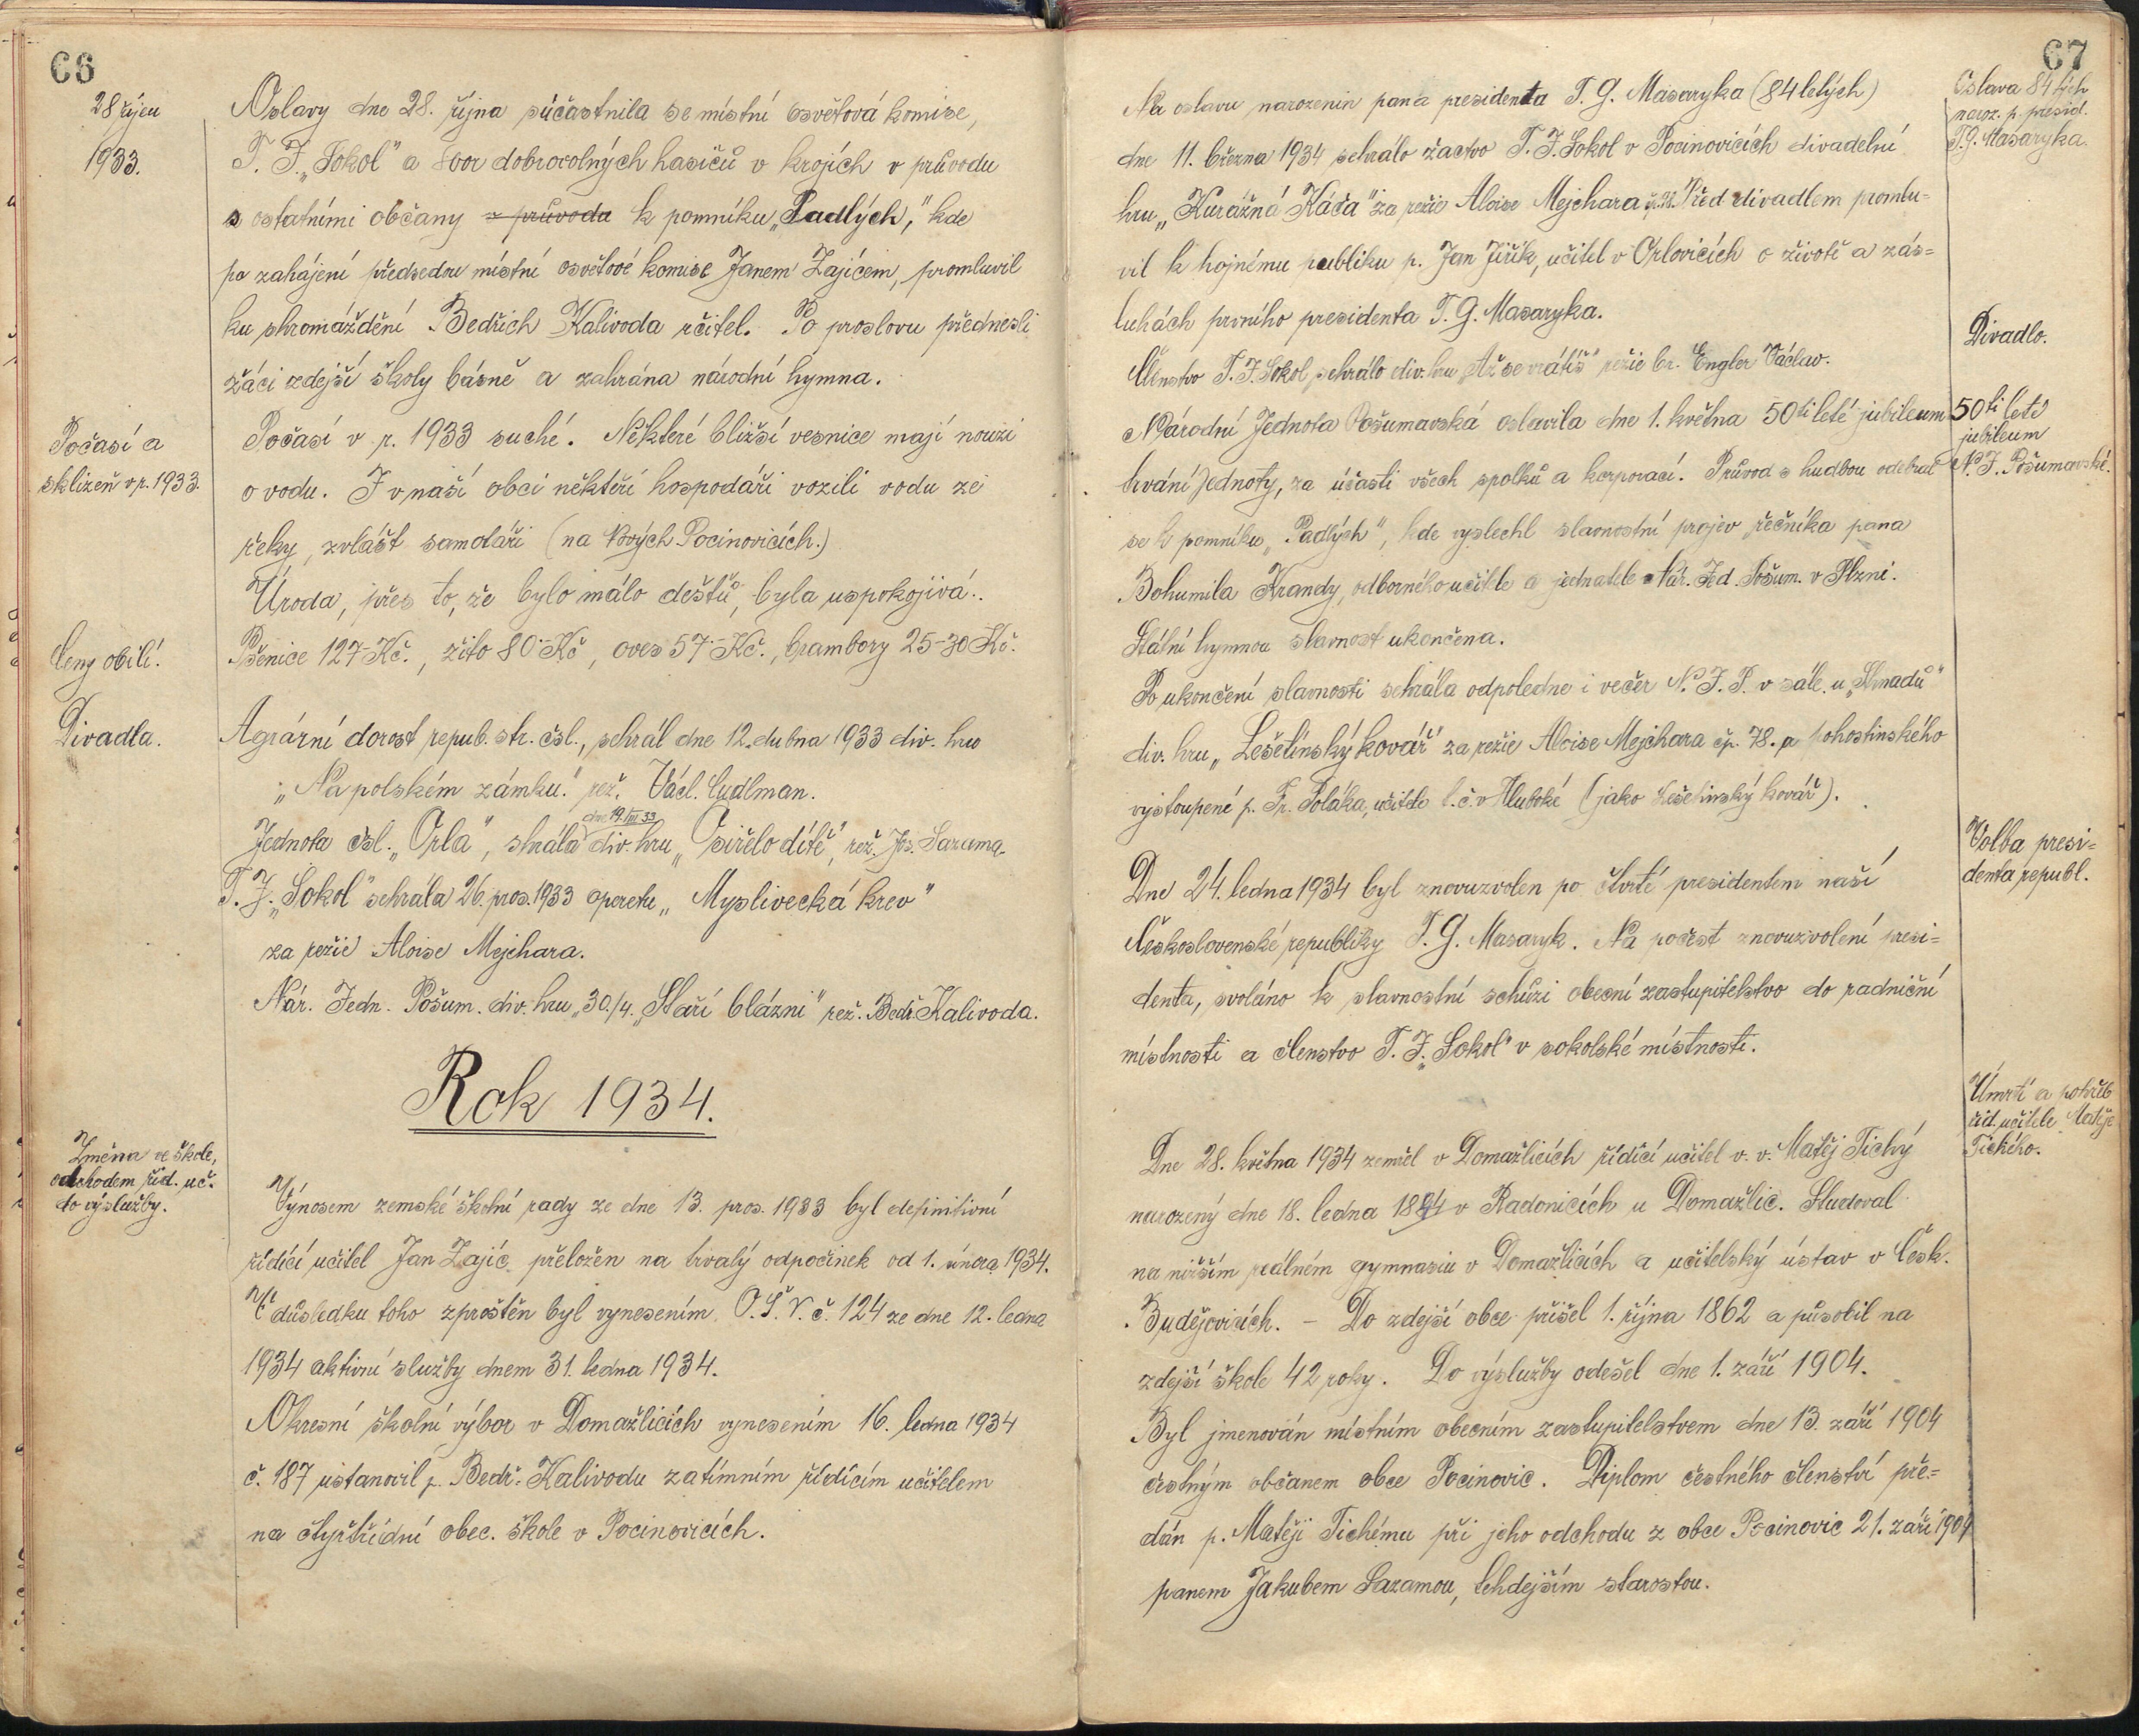 66
28 říjen
1933.
Oslavy dne 28. října súčastnila se místní osvětová komise,
T. J. „Sokol" a sbor dobrovolných hasičů v krojích v průvodu
s ostatními občany z průvodu k pomníku „Padlých," kde
po zahájení předsedou místní osvětové komise Janem Zajícem, promluvil
ku shromáždění Bedřich Kalivoda učitel. Po proslovu přednesli
žáci zdejší školy básně a zahrána národní hymna.
Počasí a
sklizeň v r. 1933.
Počasí v r. 1933 suché. Některé bližší vesnice mají nouzi
o vodu. I v naší obci někteří hospodáři vozili vodu ze
řeky, zvlášt samotáři (na Nových Pocinovicích.)
Úroda, přes to, že bylo málo deštů, byla uspokojivá.
Ceny obilí.
Pšenice 127-Kč., žito 80-Kč, oves 57-Kč., brambory 25-30 Kč.
Divadla.
Agrární dorost repub. str. čsl., sehrál dne 12. dubna 1933 div. hru
„Na polském zámku." rež. Václ. Cudlman.
dne 19. III 33
Jednota čsl. „Orla", shrála div. hru „Osiřelo dítě", rež. Jos. Sazama.
T. J. „Sokol" sehrála 26. pros. 1933 operetu „Myslivecká krev"
za režie Aloise Mejchara.
Nár. Jedn. Pošum. div. hru „30./4. „Staří blázni" rež. Bedř. Kalivoda.
Rok 1934.
Změna ve škole,
odchodem říd. uč.
do výslužby.
Výnosem zemské školní rady ze dne 13. pros. 1933 byl definitivní
řídící učitel Jan Zajíc přeložen na trvalý odpočinek od 1. února 1934.
V důsledku toho zproštěn byl vynesením O. Š. V. č. 124 ze dne 12. ledna
1934 aktivní služby dnem 31. ledna 1934.
Okresní školní výbor v Domažlicích vynesením 16. ledna 1934
č. 187 ustanovil p. Bedř. Kalivodu zatímním řídícím učitelem
na čtyřtřídní obec. škole v Pocinovicích.
67
Oslava 84 tých
naroz. p. presid.
T. G. Masaryka.
Na oslavu narozenin pana presidenta T. G. Masaryka (84 letých)
dne 11. března 1934 sehrálo žactvo T. J. Sokol v Pocinovicích divadelní
hru „Kurážná Káča" za režie Aloise Mejchara čp. 78. Před divadlem promlu-
vil k hojnému publiku p. Jan Jiřík, učitel v Orlovicích o životě a zás-
luhách prvního presidenta T. G. Masaryka.
Divadlo.
Členstvo T. J. Sokol sehrálo div. hru „Až se vrátíš" režie br. Engler Václav.
50ti leté
jubileum
N. J. Pošumavské.
Národní Jednota Pošumavská oslavila dne 1. května 50ti leté jubileum
trvání Jednoty, za účasti všech spolků a korporací. Průvod s hudbou odebral
se k pomníku „Padlých", kde vyslechl slavnostní projev řečníka pana
Bohumila Krandy, odborného učitele a jednatele Nár. Jed. Pošum. v Plzni.
Státní hymnou slavnost ukončena.
Po ukončení slavnosti sehrála odpoledne i večer N. J. P. v sále u „Strnadů"
div. hru „Lešetínský kovář" za režie Aloise Mejchara čp. 78. a pohostinského
vystoupení p. Fr. Poláka, učitele t. č. v Hluboké (jako Lešetínský kovář).
Volba presi-
denta republ.
Dne 24. ledna 1934 byl znovuzvolen po čtvrté presidentem naší
Československé republiky T. G. Masaryk. Na počest znovuzvolení presi-
denta, svoláno k slavnostní schůzi obecní zastupitelstvo do radniční
místnosti a členstvo T. J. „Sokol" v sokolské místnosti.
Úmrtí a pohřeb
říd. učitele Matěje
Tichého.
Dne 28. května 1934 zemřel v Domažlicích řídící učitel v. v. Matěj Tichý
narozený dne 18. ledna 1844 v Radonicích u Domažlic. Studoval
na nižším reálném gymnasiu v Domažlicích a učitelský ústav v Česk.
Budějovicích. - Do zdejší obce přišel 1. října 1862 a působil na
zdejší škole 42 roky. Do výslužby odešel dne 1. září 1904.
Byl jmenován místním obecním zastupitelstvem dne 13. září 1904
čestným občanem obce Pocinovic. Diplom čestného členství pře-
dán p. Matěji Tichému při jeho odchodu z obce Pocinovic 21. září 1904
panem Jakubem Sazamou, tehdejším starostou.